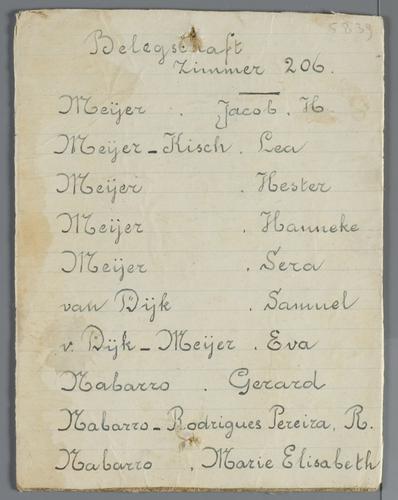 5839
Belegschaft
Zimmer 206.
Meijer . Jacob. H.
Meijer-Kisch. Lea
Meijer . Hester
Meijer . Hanneke
Meijer . Sera
van Dijk . Samuel
v. Dijk-Meijer . Eva
Nabarro . Gerard
Nabarro-Rodrigues Pereira, R.
Nabarro . Marie Elisabeth